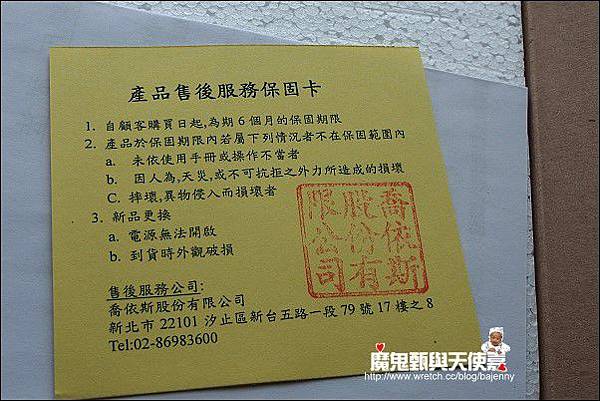 產品售後服務保固卡
1. 自顧客購買日起,為期 6 個月的保固期限
2. 產品於保固期限內若屬下列情況者不在保固範圍內
a. 未依使用手冊或操作不當者
b. 因人為,天災,或不可抗拒之外力所造成的損壞
C. 摔壞,異物侵入而損壞者
3. 新品更換
a. 電源無法開啟
b. 到貨時外觀破損
售後服務公司:
喬依斯股份有限公司
新北市 22101 汐止區新台五路一段 79 號 17 樓之 8
Tel:02-86983600
喬依斯
股份有
限公司
魔鬼甄與天使嘉
http://www.wretch.cc/blog/bajenny